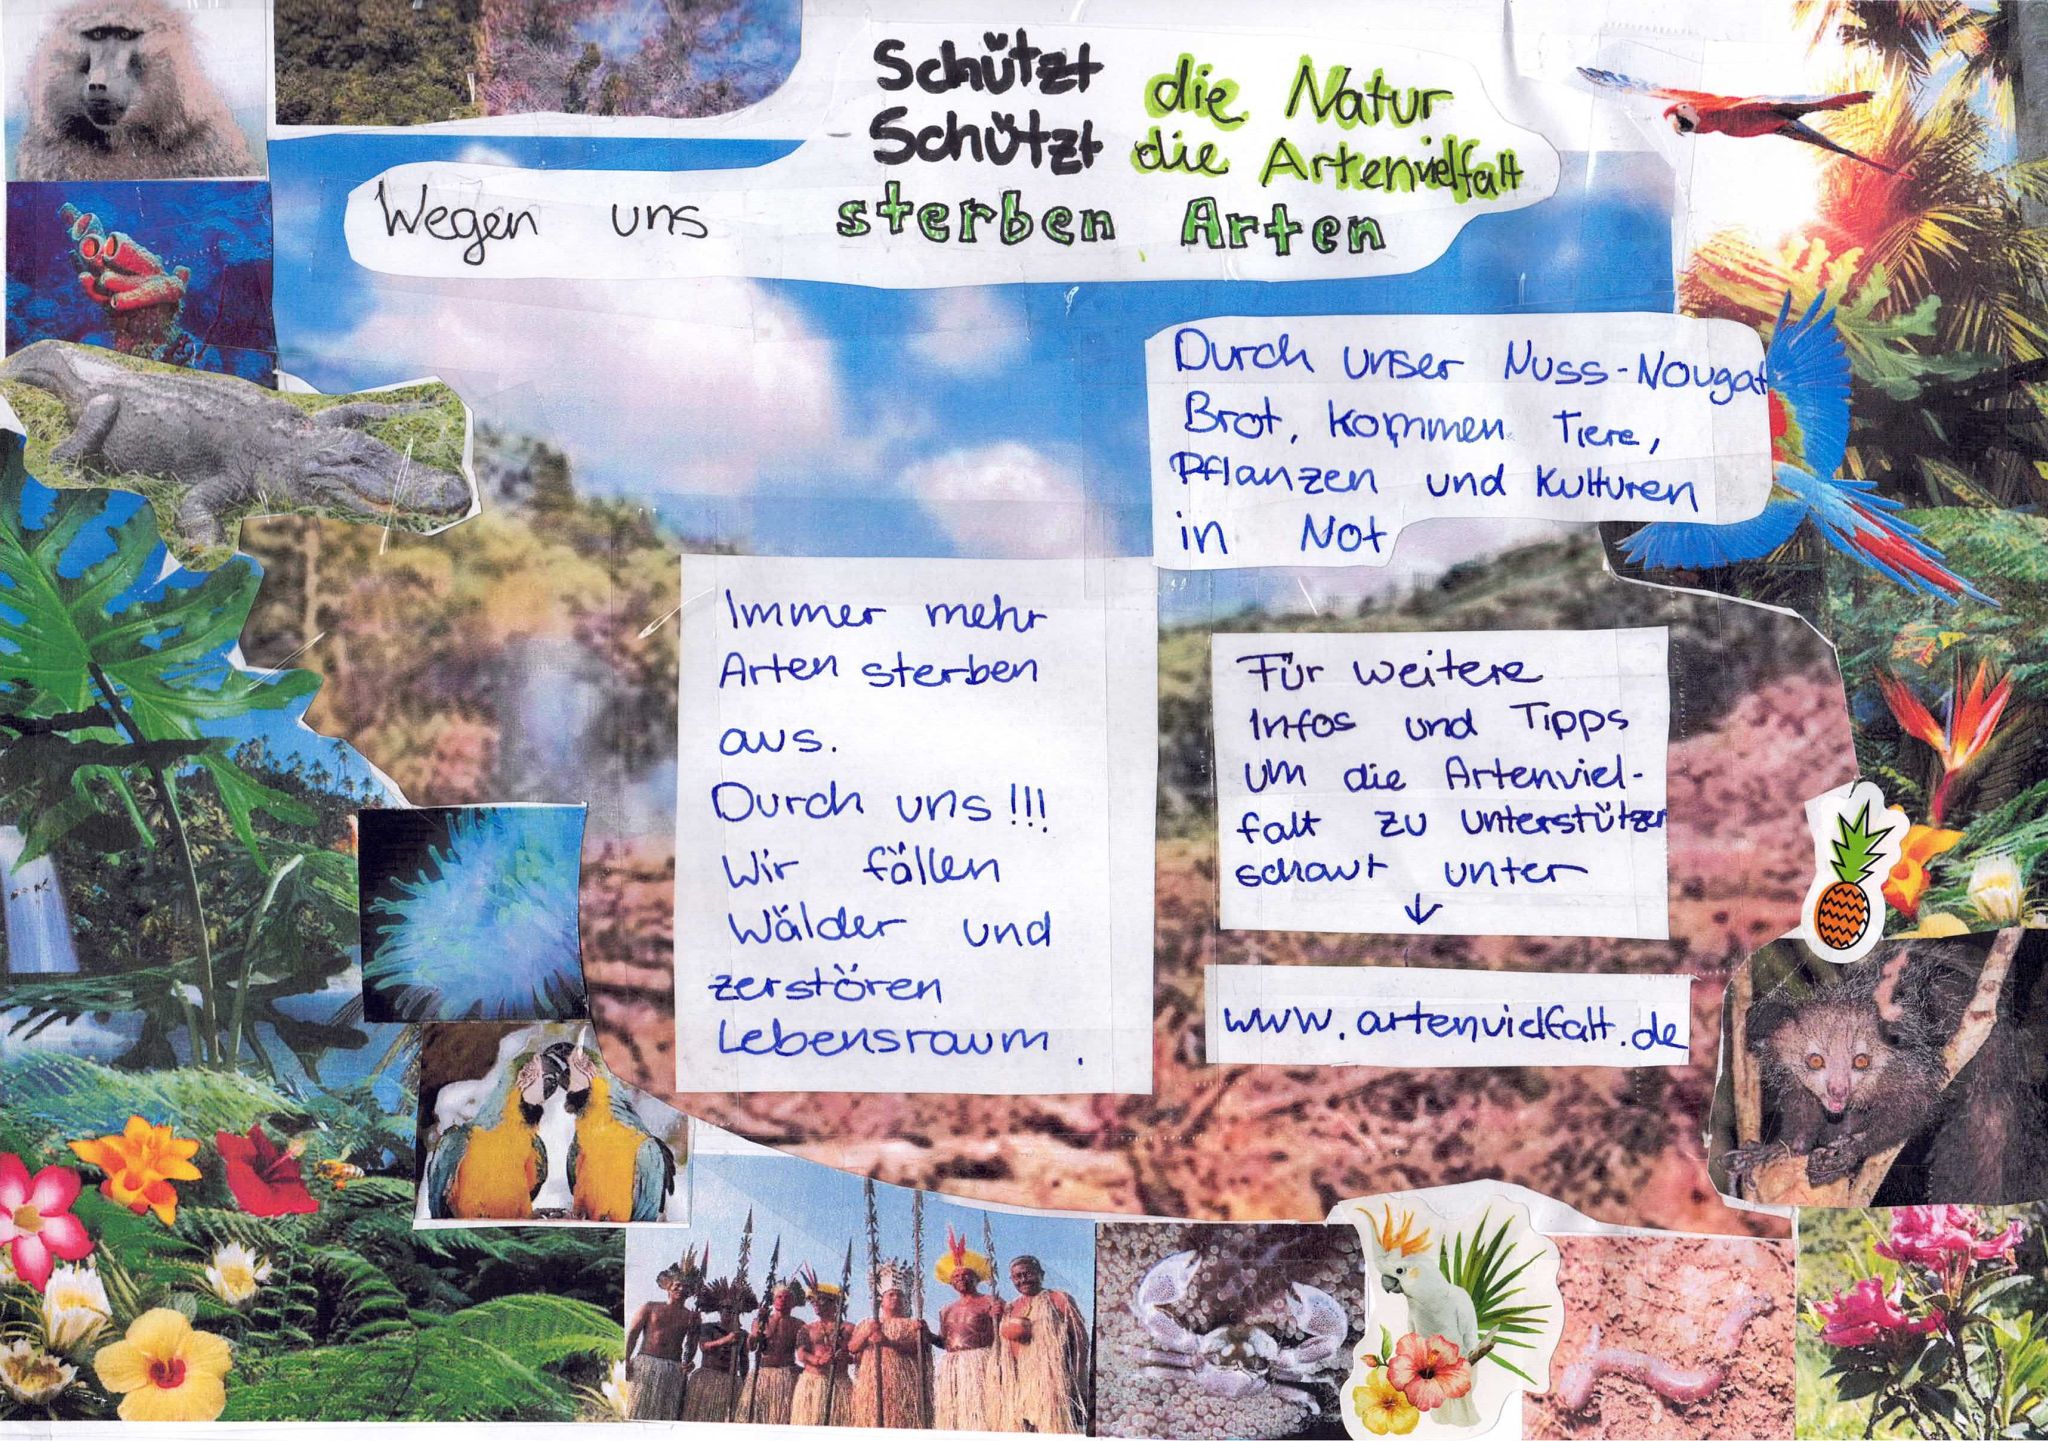 Schützt die Natur
Schützt die Artenvielfalt
Wegen uns sterben Arten
Durch unser Nuss-Nougat
Brot, kommen Tiere,
Pflanzen und Kulturen
in Not
Immer mehr
Arten sterben
aus.
Durch uns!!!
Wir fällen
Wälder und
zerstören
Lebensraum.
Für weitere
Infos und Tipps
um die Artenviel-
falt zu unterstützen
schaut unter
↓
www.artenvielfalt.de